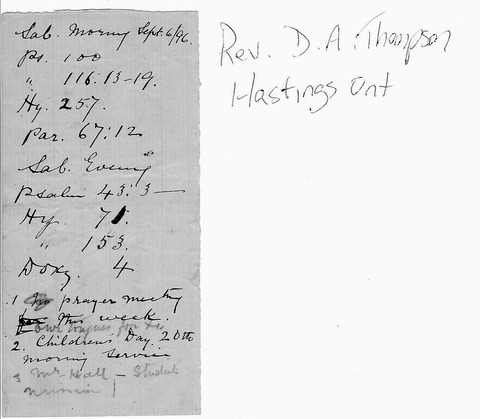 Sab. Morng Sept. 6/96.
Ps. 100
" 116:13-19.
Hy. 257.
Par. 67:12
Sab. Evening
Psalm 43:3—
Hy. 71.
" 153.
Doxy. 4
1 No prayer meeting
for this week.
2. Childrens Day. 20th
morning service
3 Mr Hall – Students
mission
Rev. D. A. Thompson
Hastings Ont